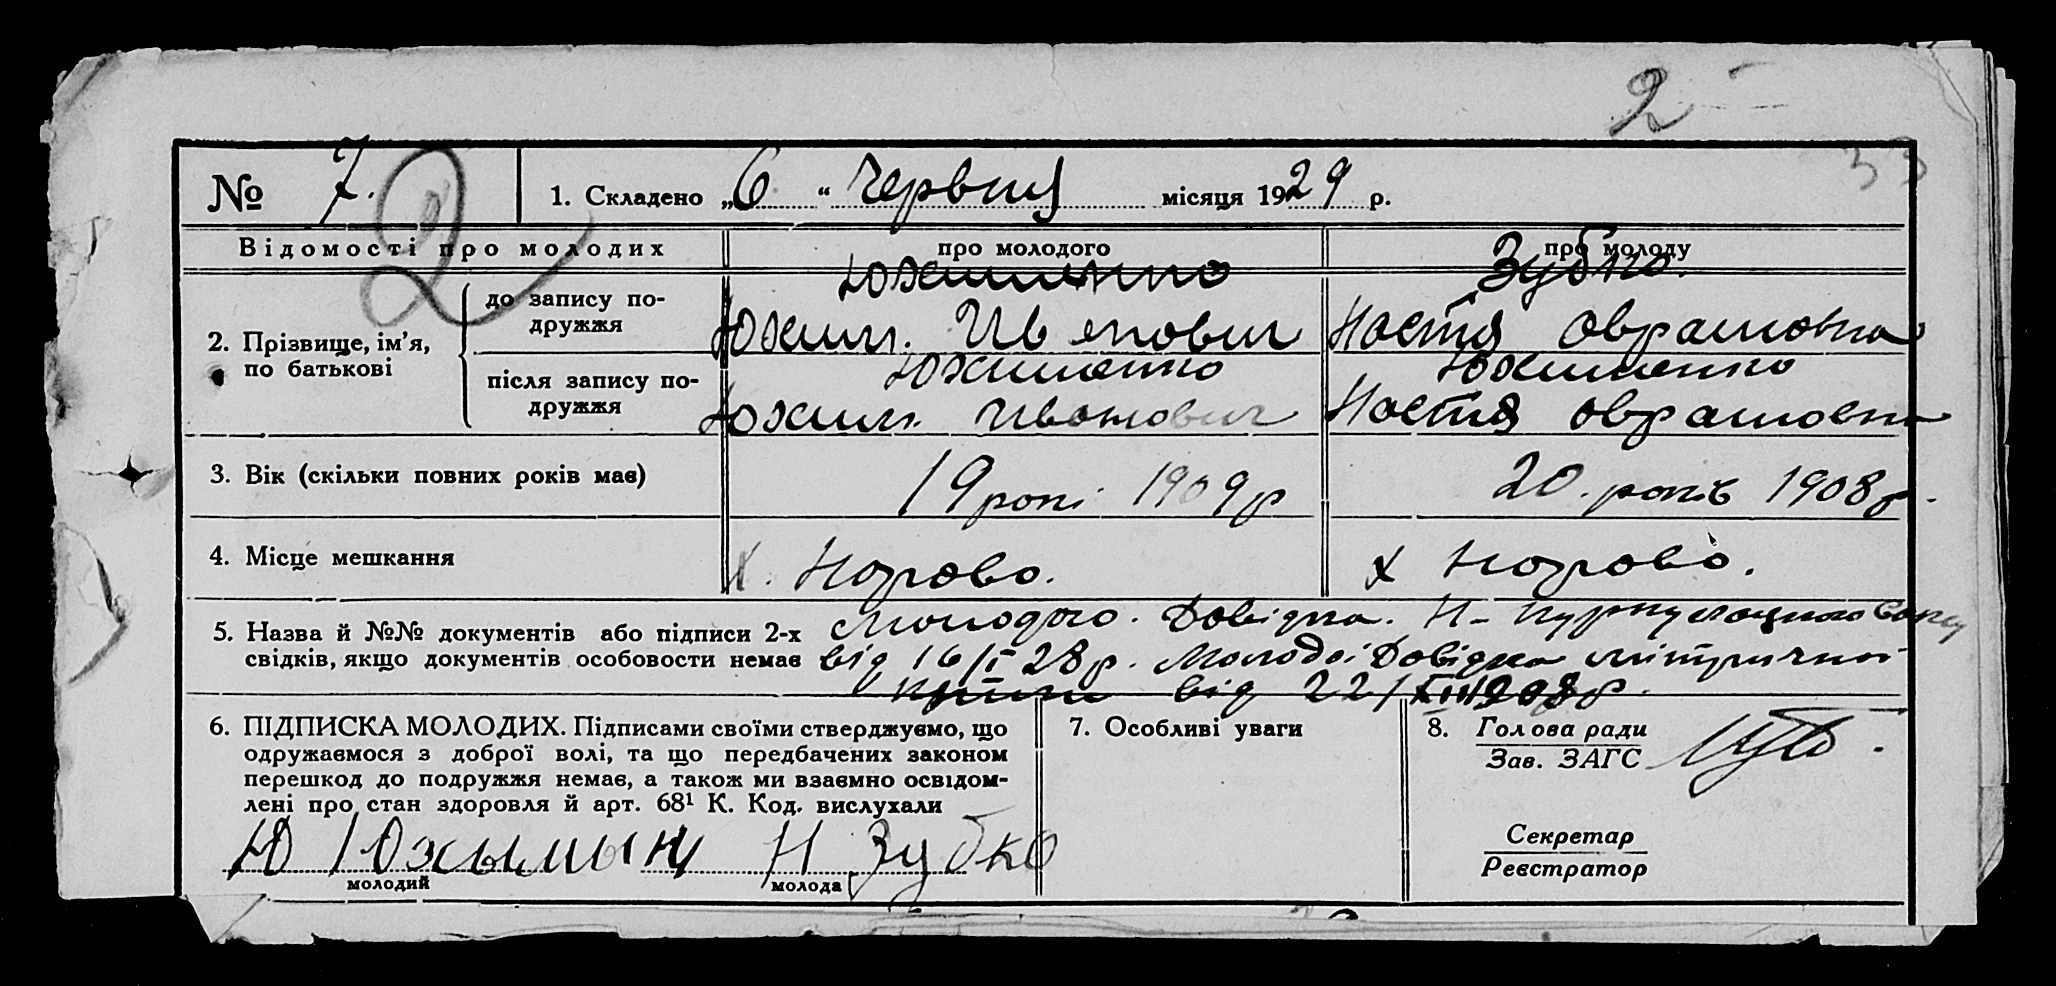 2
33
№ 7.
2
1. Складено „6" Червця місяця 1929 р.
Відомості про молодих
про молодого
про молоду
2. Прізвище, ім'я, по батькові
до запису по-
дружжя
Юхименко
Юхим. Иванович
Зубко.
Настя Оврамовна
після запису по-
дружжя
Юхименко
Юхим. Иванович
Юхименко
Настя Оврамовна
3. Вік (скільки повних років має)
19 рокі 1909 р
20. років 1908 р.
4. Місце мешкання
х.
х
5. Назва й №№ документів або підписи 2-х
свідків, якщо документів особовости немає
Молодого. Довідка. Н-
від 16/I 28 р. Молодої Довідка митричної
від 22/XII 1908 р.
6. ПІДПИСКА МОЛОДИХ. Підписами своїми стверджуємо, що
одружаємося з доброї волі, та що передбачених законом
перешкод до подружжя немає, а також ми взаємно освідом-
лені про стан здоровля й арт. 68¹ К. Код. вислухали
Ю Юхымын
молодий
Н Зубко
молода
7. Особливі уваги
8. Голова ради
Зав. ЗАГС
Секретар
Реєстратор